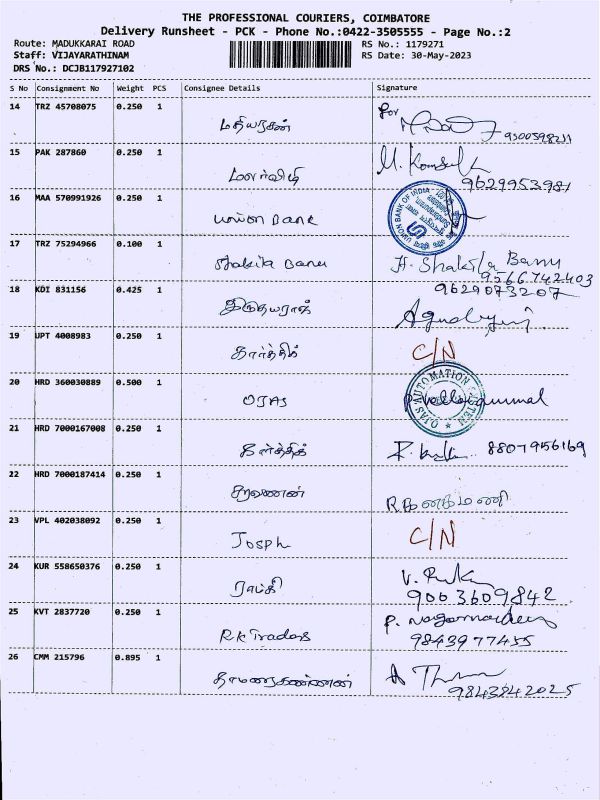 THE PROFESSIONAL COURIERS, COIMBATORE
Delivery Runsheet - PCK - Phone No.:0422-3505555 - Page No.:2
Route: MADUKKARAI ROAD RS No.: 1179271
Staff: VIJAYARATHINAM RS Date: 30-May-2023
DRS No.: DCJB117927102
S No Consignment No Weight PCS Consignee Details Signature
14 TRZ 45708075 0.250 1 for
மதியரசன்
15 PAK 287860 0.250 1
மலர்விழி 9629953981
16 MAA 570991926 0.250 1 UNION BANK OF INDIA
union Bank
17 TRZ 75294966 0.100 1
Shakila Banu H. Shakila Banu
9566742403
18 KDI 831156 0.425 1 9629073207
இருதயராஜ்
19 UPT 4008983 0.250 1
கார்த்திக் C/N
20 HRD 360030889 0.500 1 OJAS AUTOMATION SYSTEM
OJAS
21 HRD 7000167008 0.250 1
கார்த்திக் 8807956169
22 HRD 7000187414 0.250 1
சரவணன் R.கனகமணி
23 VPL 402038092 0.250 1
Josph C/N
24 KUR 558650376 0.250 1
ராம்கி 9003609842
25 KVT 2837720 0.250 1
RK Tradas 9843977455
26 CMM 215796 0.895 1
தாமரைகண்ணன் 9843842025